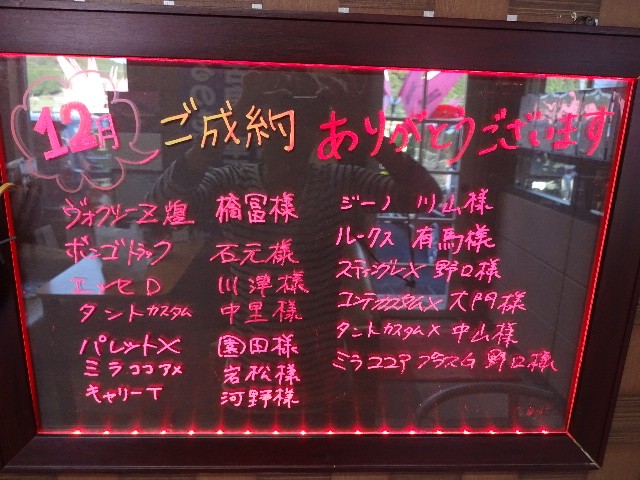 12月 ご成約 ありがとうございます
ヴォクシーZ煌 橋冨様
ボンゴトラック 石元様
エッセD 川津様
タントカスタム 中里様
パレットX 園田様
ミラココアX 岩松様
キャリーT 河野様
ジーノ 川山様
ルークス 有馬様
スティングレX 野口様
コンテカスタムX 大門様
タントカスタムX 中山様
ミラココア プラスG 野口様